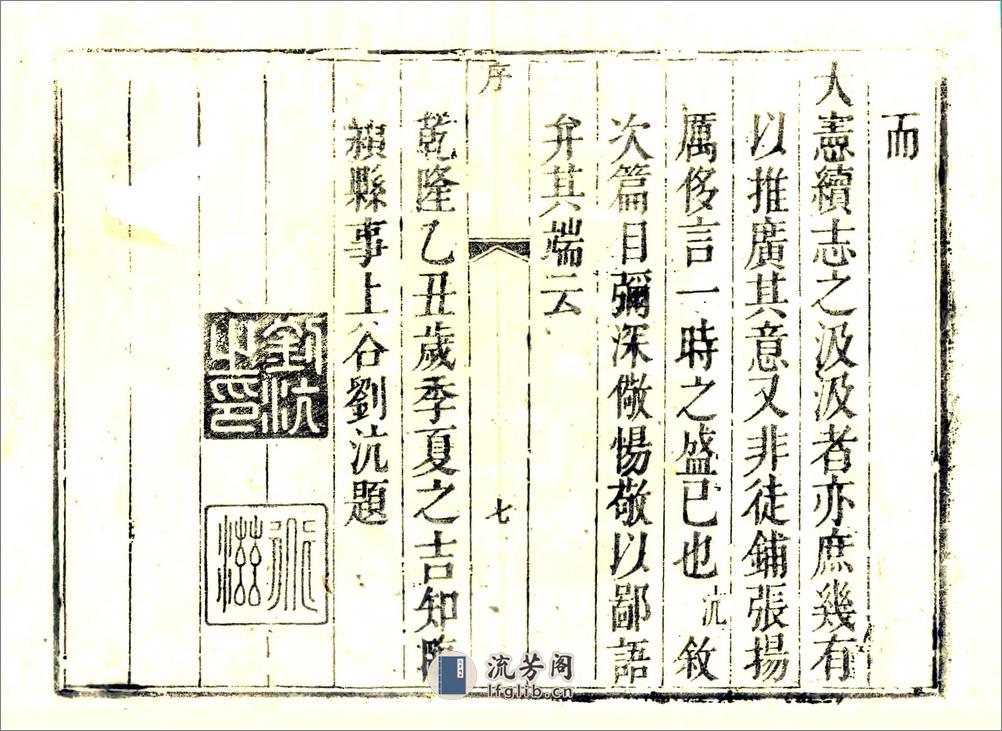 而
大憲續志之汲汲者亦庶幾有
以推廣其意又非徒鋪張揚
厲侈言一時之盛已也沆敘
次篇目彌深儆惕敬以鄙語
弁其端云
序
七
乾隆乙丑歲季夏之吉知臨
潁縣事上谷劉沆題
劉沆之印
流芳阁
lfglib.cn